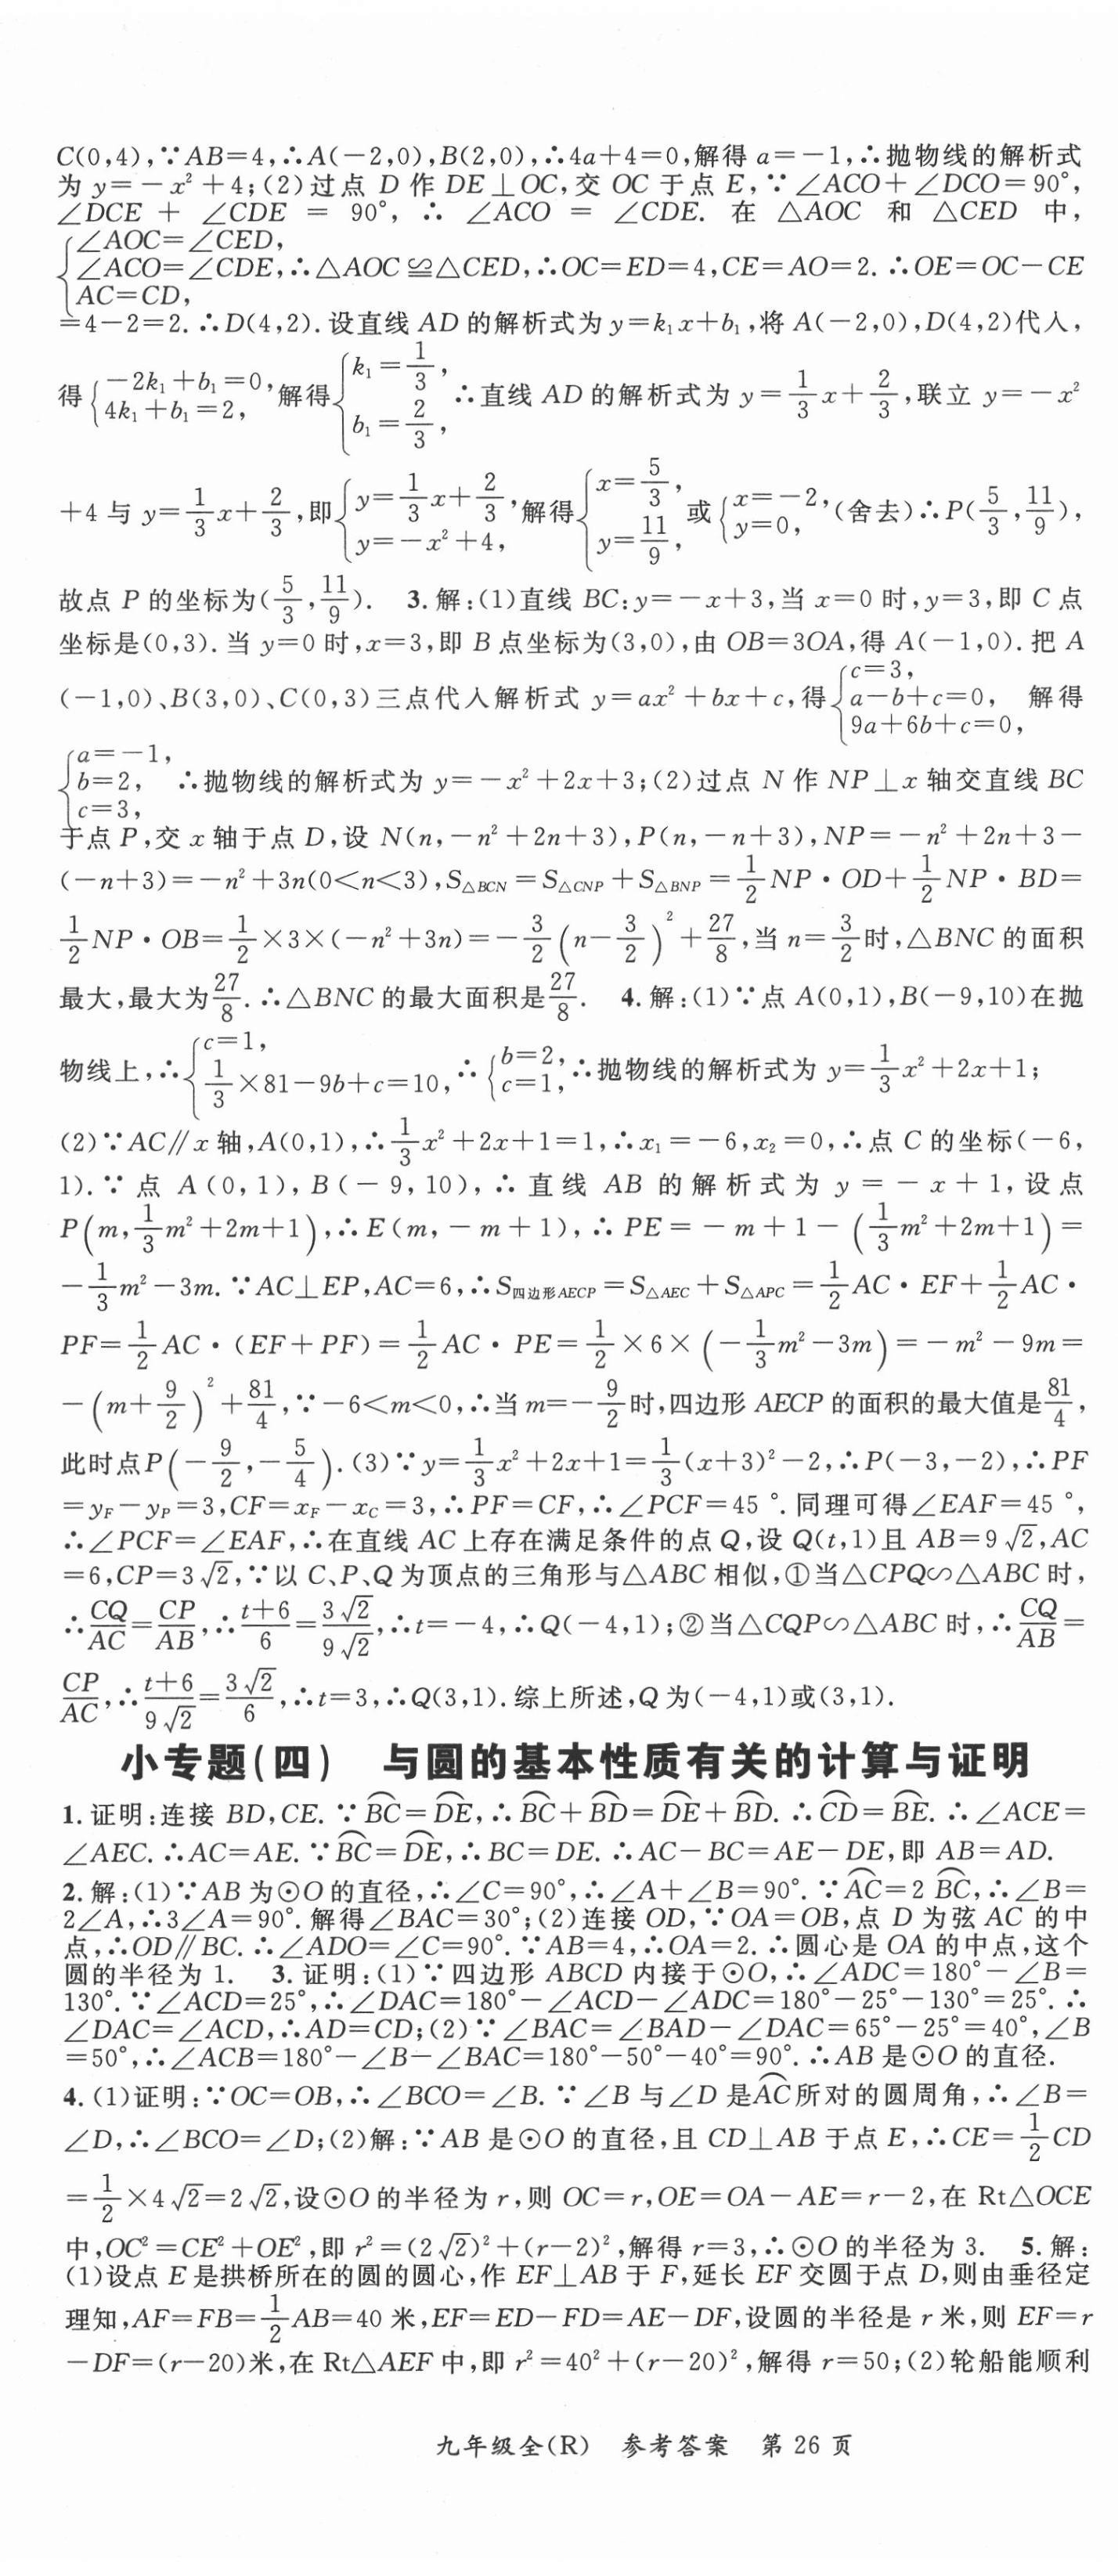 C(0,4),∵AB=4,∴A(-2,0),B(2,0),∴4a+4=0,解得 a=-1,∴抛物线的解析式
为 y=-x²+4;(2)过点 D 作 DE⊥OC,交 OC 于点 E,∵∠ACO+∠DCO=90°,
∠DCE + ∠CDE = 90°, ∴ ∠ACO = ∠CDE. 在 △AOC 和 △CED 中,
{∠AOC=∠CED,
∠ACO=∠CDE,∴△AOC≌△CED,∴OC=ED=4,CE=AO=2.∴OE=OC-CE
AC=CD,
=4-2=2.∴D(4,2).设直线 AD 的解析式为 y=k₁x+b₁,将 A(-2,0),D(4,2)代入,
得{-2k₁+b₁=0, 4k₁+b₁=2, 解得{k₁=1/3, b₁=2/3, ∴直线 AD 的解析式为 y=1/3x+2/3,联立 y=-x²
+4 与 y=1/3x+2/3,即{y=1/3x+2/3, y=-x²+4, 解得{x=5/3, y=11/9, 或{x=-2, y=0, (舍去)∴P(5/3,11/9),
故点 P 的坐标为(5/3,11/9). 3.解:(1)直线 BC:y=-x+3,当 x=0 时,y=3,即 C 点
坐标是(0,3).当 y=0 时,x=3,即 B 点坐标为(3,0),由 OB=3OA,得 A(-1,0).把 A
(-1,0)、B(3,0)、C(0,3)三点代入解析式 y=ax²+bx+c,得{c=3, a-b+c=0, 9a+6b+c=0, 解得
{a=-1,
b=2, ∴抛物线的解析式为 y=-x²+2x+3;(2)过点 N 作 NP⊥x 轴交直线 BC
c=3,
于点 P,交 x 轴于点 D,设 N(n,-n²+2n+3),P(n,-n+3),NP=-n²+2n+3-
(-n+3)=-n²+3n(0<n<3),S△BCN=S△CNP+S△BNP=1/2NP·OD+1/2NP·BD=
1/2NP·OB=1/2×3×(-n²+3n)=-3/2(n-3/2)²+27/8,当 n=3/2时,△BNC 的面积
最大,最大为27/8.∴△BNC 的最大面积是27/8. 4.解:(1)∵点 A(0,1),B(-9,10)在抛
物线上,∴{c=1, 1/3×81-9b+c=10, ∴{b=2, c=1, ∴抛物线的解析式为 y=1/3x²+2x+1;
(2)∵AC∥x 轴,A(0,1),∴1/3x²+2x+1=1,∴x₁=-6,x₂=0,∴点 C 的坐标(-6,
1).∵点 A(0,1),B(-9,10),∴直线 AB 的解析式为 y=-x+1,设点
P(m,1/3m²+2m+1),∴E(m,-m+1),∴PE=-m+1-(1/3m²+2m+1)=
-1/3m²-3m.∵AC⊥EP,AC=6,∴S四边形AECP=S△AEC+S△APC=1/2AC·EF+1/2AC·
PF=1/2AC·(EF+PF)=1/2AC·PE=1/2×6×(-1/3m²-3m)=-m²-9m=
-(m+9/2)²+81/4,∵-6<m<0,∴当 m=-9/2时,四边形 AECP 的面积的最大值是81/4,
此时点P(-9/2,-5/4).(3)∵y=1/3x²+2x+1=1/3(x+3)²-2,∴P(-3,-2),∴PF
=yF-yP=3,CF=xF-xC=3,∴PF=CF,∴∠PCF=45°.同理可得∠EAF=45°,
∴∠PCF=∠EAF,∴在直线 AC 上存在满足条件的点 Q,设 Q(t,1)且 AB=9√2,AC
=6,CP=3√2,∵以 C、P、Q 为顶点的三角形与△ABC 相似,①当△CPQ∽△ABC 时,
∴CQ/AC=CP/AB,∴(t+6)/6=3√2/9√2,∴t=-4,∴Q(-4,1);②当△CQP∽△ABC 时,∴CQ/AB=
CP/AC,∴(t+6)/9√2=3√2/6,∴t=3,∴Q(3,1).综上所述,Q 为(-4,1)或(3,1).
小专题(四) 与圆的基本性质有关的计算与证明
1.证明:连接 BD,CE.∵⌒BC=⌒DE,∴⌒BC+⌒BD=⌒DE+⌒BD.∴⌒CD=⌒BE.∴∠ACE=
∠AEC.∴AC=AE.∵⌒BC=⌒DE,∴BC=DE.∴AC-BC=AE-DE,即 AB=AD.
2.解:(1)∵AB 为⊙O 的直径,∴∠C=90°,∴∠A+∠B=90°.∵⌒AC=2⌒BC,∴∠B=
2∠A,∴3∠A=90°.解得∠BAC=30°;(2)连接 OD,∵OA=OB,点 D 为弦 AC 的中
点,∴OD∥BC.∴∠ADO=∠C=90°.∵AB=4,∴OA=2.∴圆心是 OA 的中点,这个
圆的半径为 1. 3.证明:(1)∵四边形 ABCD 内接于⊙O,∴∠ADC=180°-∠B=
130°.∵∠ACD=25°,∴∠DAC=180°-∠ACD-∠ADC=180°-25°-130°=25°.∴
∠DAC=∠ACD,∴AD=CD;(2)∵∠BAC=∠BAD-∠DAC=65°-25°=40°,∠B
=50°,∴∠ACB=180°-∠B-∠BAC=180°-50°-40°=90°.∴AB 是⊙O 的直径.
4.(1)证明:∵OC=OB,∴∠BCO=∠B.∵∠B 与∠D 是⌒AC所对的圆周角,∴∠B=
∠D,∴∠BCO=∠D;(2)解:∵AB 是⊙O 的直径,且 CD⊥AB 于点 E,∴CE=1/2CD
=1/2×4√2=2√2,设⊙O 的半径为 r,则 OC=r,OE=OA-AE=r-2,在 Rt△OCE
中,OC²=CE²+OE²,即 r²=(2√2)²+(r-2)²,解得 r=3,∴⊙O 的半径为 3. 5.解:
(1)设点 E 是拱桥所在的圆的圆心,作 EF⊥AB 于 F,延长 EF 交圆于点 D,则由垂径定
理知,AF=FB=1/2AB=40 米,EF=ED-FD=AE-DF,设圆的半径是 r 米,则 EF=r
-DF=(r-20)米,在 Rt△AEF 中,即 r²=40²+(r-20)²,解得 r=50;(2)轮船能顺利
九年级全(R) 参考答案 第 26 页